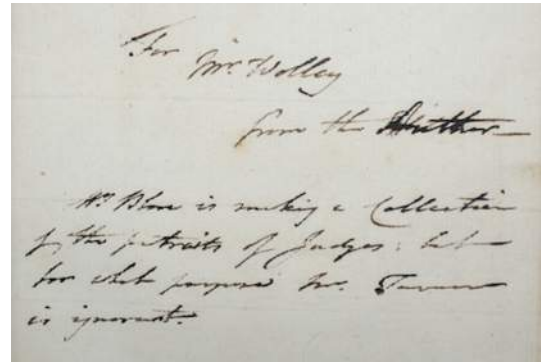 For
Mr. Wolley
from the Author
Mr. Blore is making a Collection
of the portraits of Judges; but
for what purpose Mr. Turner
is ignorant.